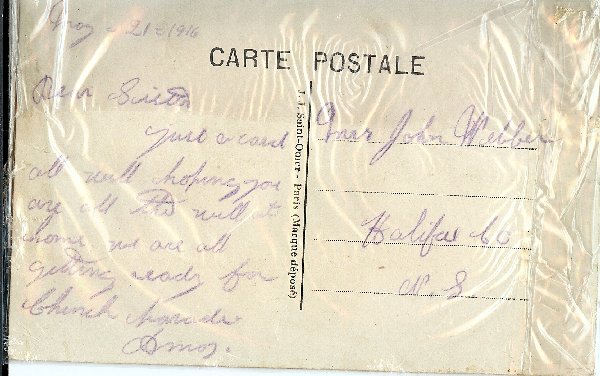 21 - 1916
CARTE POSTALE
Dear Sister
Just a card
all well hoping you
are all the well at
home. we are all
getting ready for
Church Parade
Amos.
J. J. Saint-Omer - Paris (Marque déposé)
Mrs John Webber
Halifax Co
N. S